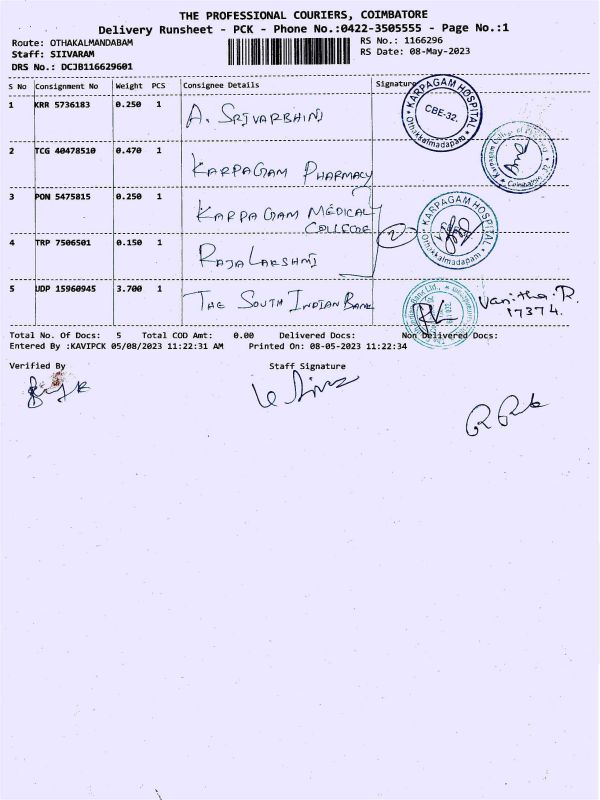 THE PROFESSIONAL COURIERS, COIMBATORE
Delivery Runsheet - PCK - Phone No.:0422-3505555 - Page No.:1
Route: OTHAKALMANDABAM
Staff: SIIVARAM
DRS No.: DCJB116629601
RS No.: 1166296
RS Date: 08-May-2023
S No Consignment No Weight PCS Consignee Details Signature
1 KRR 5736183 0.250 1 A. SRIVARBHINI
KARPAGAM HOSPITAL
CBE-32.
Othakkalmadapam
2 TCG 40478510 0.470 1 KARPAGAM PHARMACY
Karpagam College of
Coimbatore
3 PON 5475815 0.250 1 KARPAGAM MEDICAL
COLLEGE
KARPAGAM HOSPITAL
Othakkalmadapam
2
4 TRP 7506501 0.150 1 RAJALAKSHMI
5 UDP 15960945 3.700 1 THE SOUTH INDIAN BANK
Vanitha.R.
17374.
Total No. Of Docs: 5 Total COD Amt: 0.00 Delivered Docs: Non Delivered Docs:
Entered By :KAVIPCK 05/08/2023 11:22:31 AM Printed On: 08-05-2023 11:22:34
Verified By Staff Signature